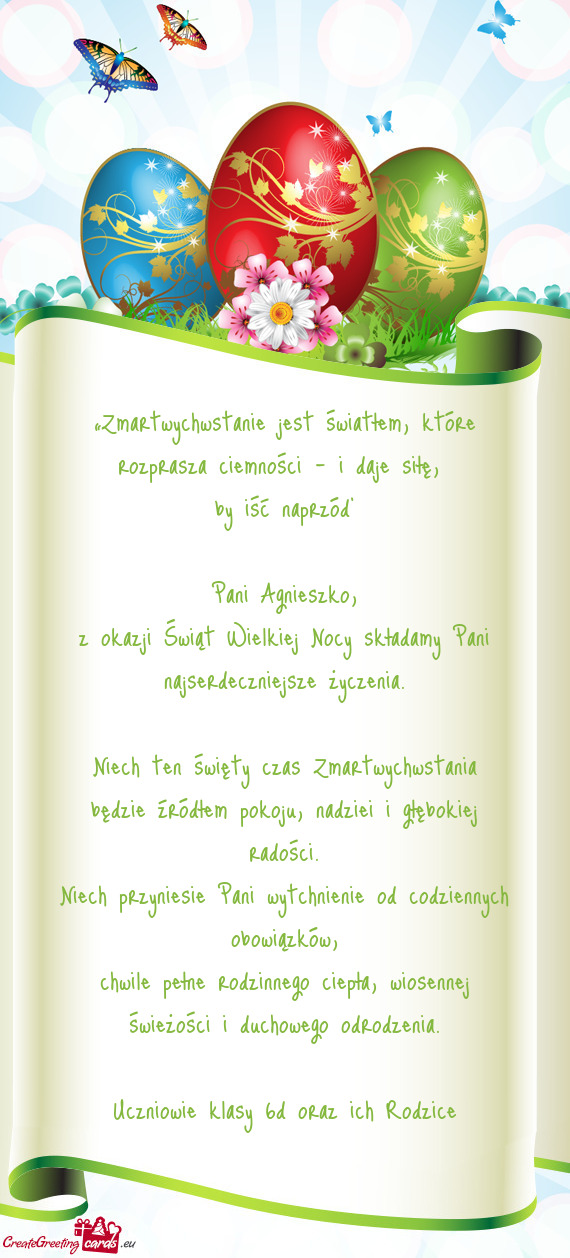 „Zmartwychwstanie jest światłem, które
rozprasza ciemności - i daje siłę,
by iść naprzód"
Pani Agnieszko,
z okazji Świąt Wielkiej Nocy składamy Pani
najserdeczniejsze życzenia.
Niech ten święty czas Zmartwychwstania
będzie źródłem pokoju, nadziei i głębokiej
radości.
Niech przyniesie Pani wytchnienie od codziennych
obowiązków,
chwile pełne rodzinnego ciepła, wiosennej
świeżości i duchowego odrodzenia.
Uczniowie klasy 6d oraz ich Rodzice
CreateGreeting cards .eu